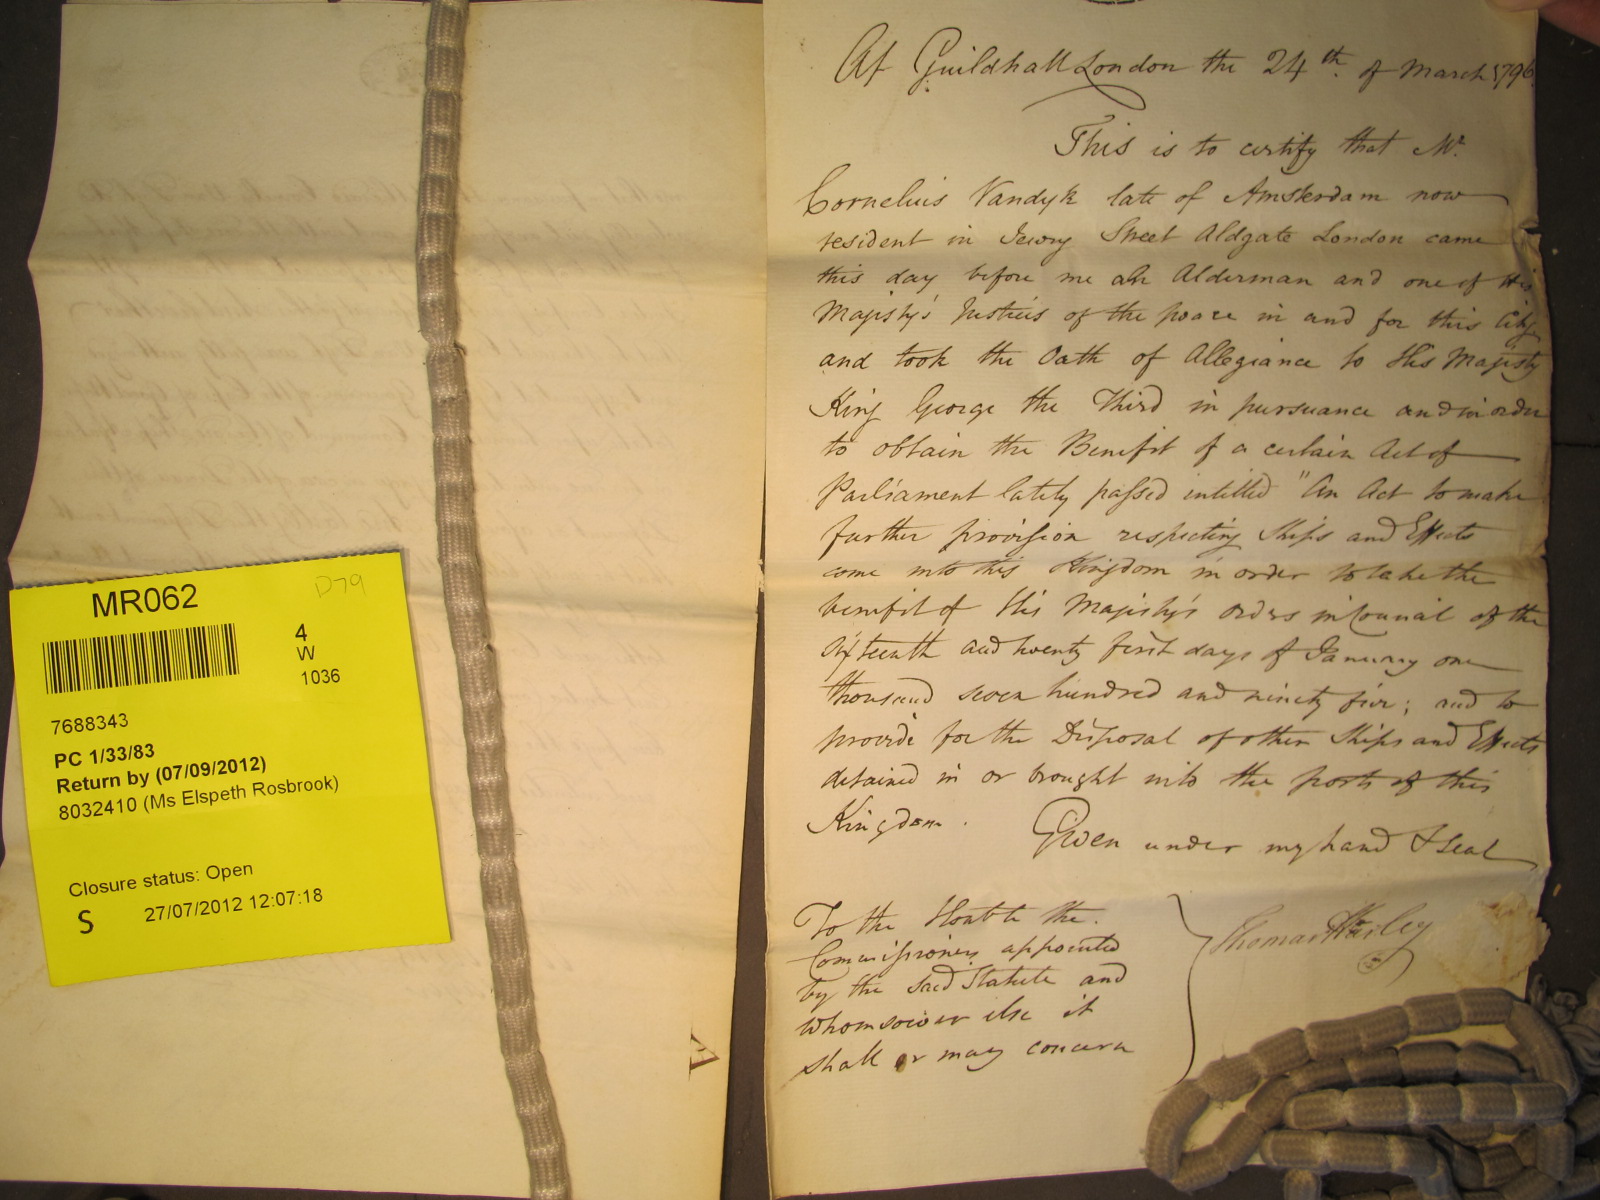 MR062
D79
4
W
1036
7688343
PC 1/33/83
Return by (07/09/2012)
8032410 (Ms Elspeth Rosbrook)
Closure status: Open
S
27/07/2012 12:07:18
At Guildhall London the 24th. of March 1796
This is to certify that Mr.
Cornelius Vandyk late of Amsterdam now
resident in Jewry Street Aldgate London came
this day before me an Alderman and one of His
Majesty's Justices of the peace in and for this City
and took the Oath of Allegiance to His Majesty
King George the Third in pursuance and in order
to obtain the Benefit of a certain Act of
Parliament lately passed intitled "An Act to make
further provision respecting Ships and Effects
come into this Kingdom in order to take the
benefit of His Majesty's orders in Council of the
sixteenth and twenty first days of January one
thousand seven hundred and ninety five; and to
provide for the Disposal of other Ships and Effects
detained in or brought into the ports of this
Kingdom.
Given under my hand & seal
To the Honble the.
Commissioners appointed
by the said Statute and
whomsoever else it
shall or may concern
Thomas Harley